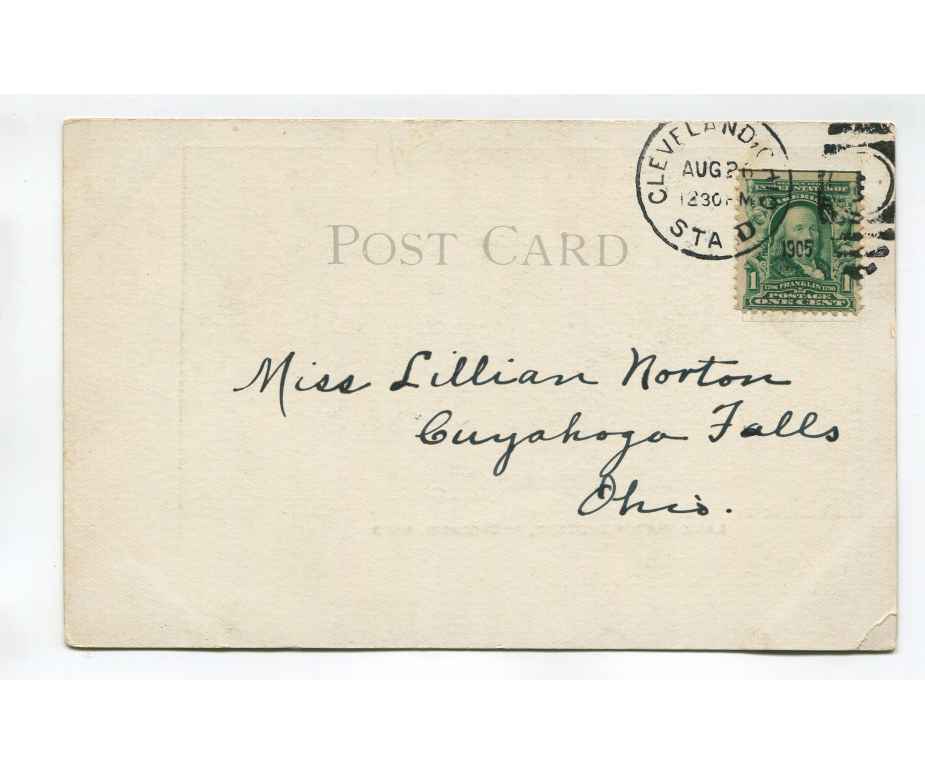 CLEVELAND, OHIO
AUG 26
12 30 PM
1905
STA D
UNITED STATES OF
AMERICA
1 1
1706 FRANKLIN 1790
POSTAGE
ONE CENT
POST CARD
Miss Lillian Norton
Cuyahoga Falls
Ohio.